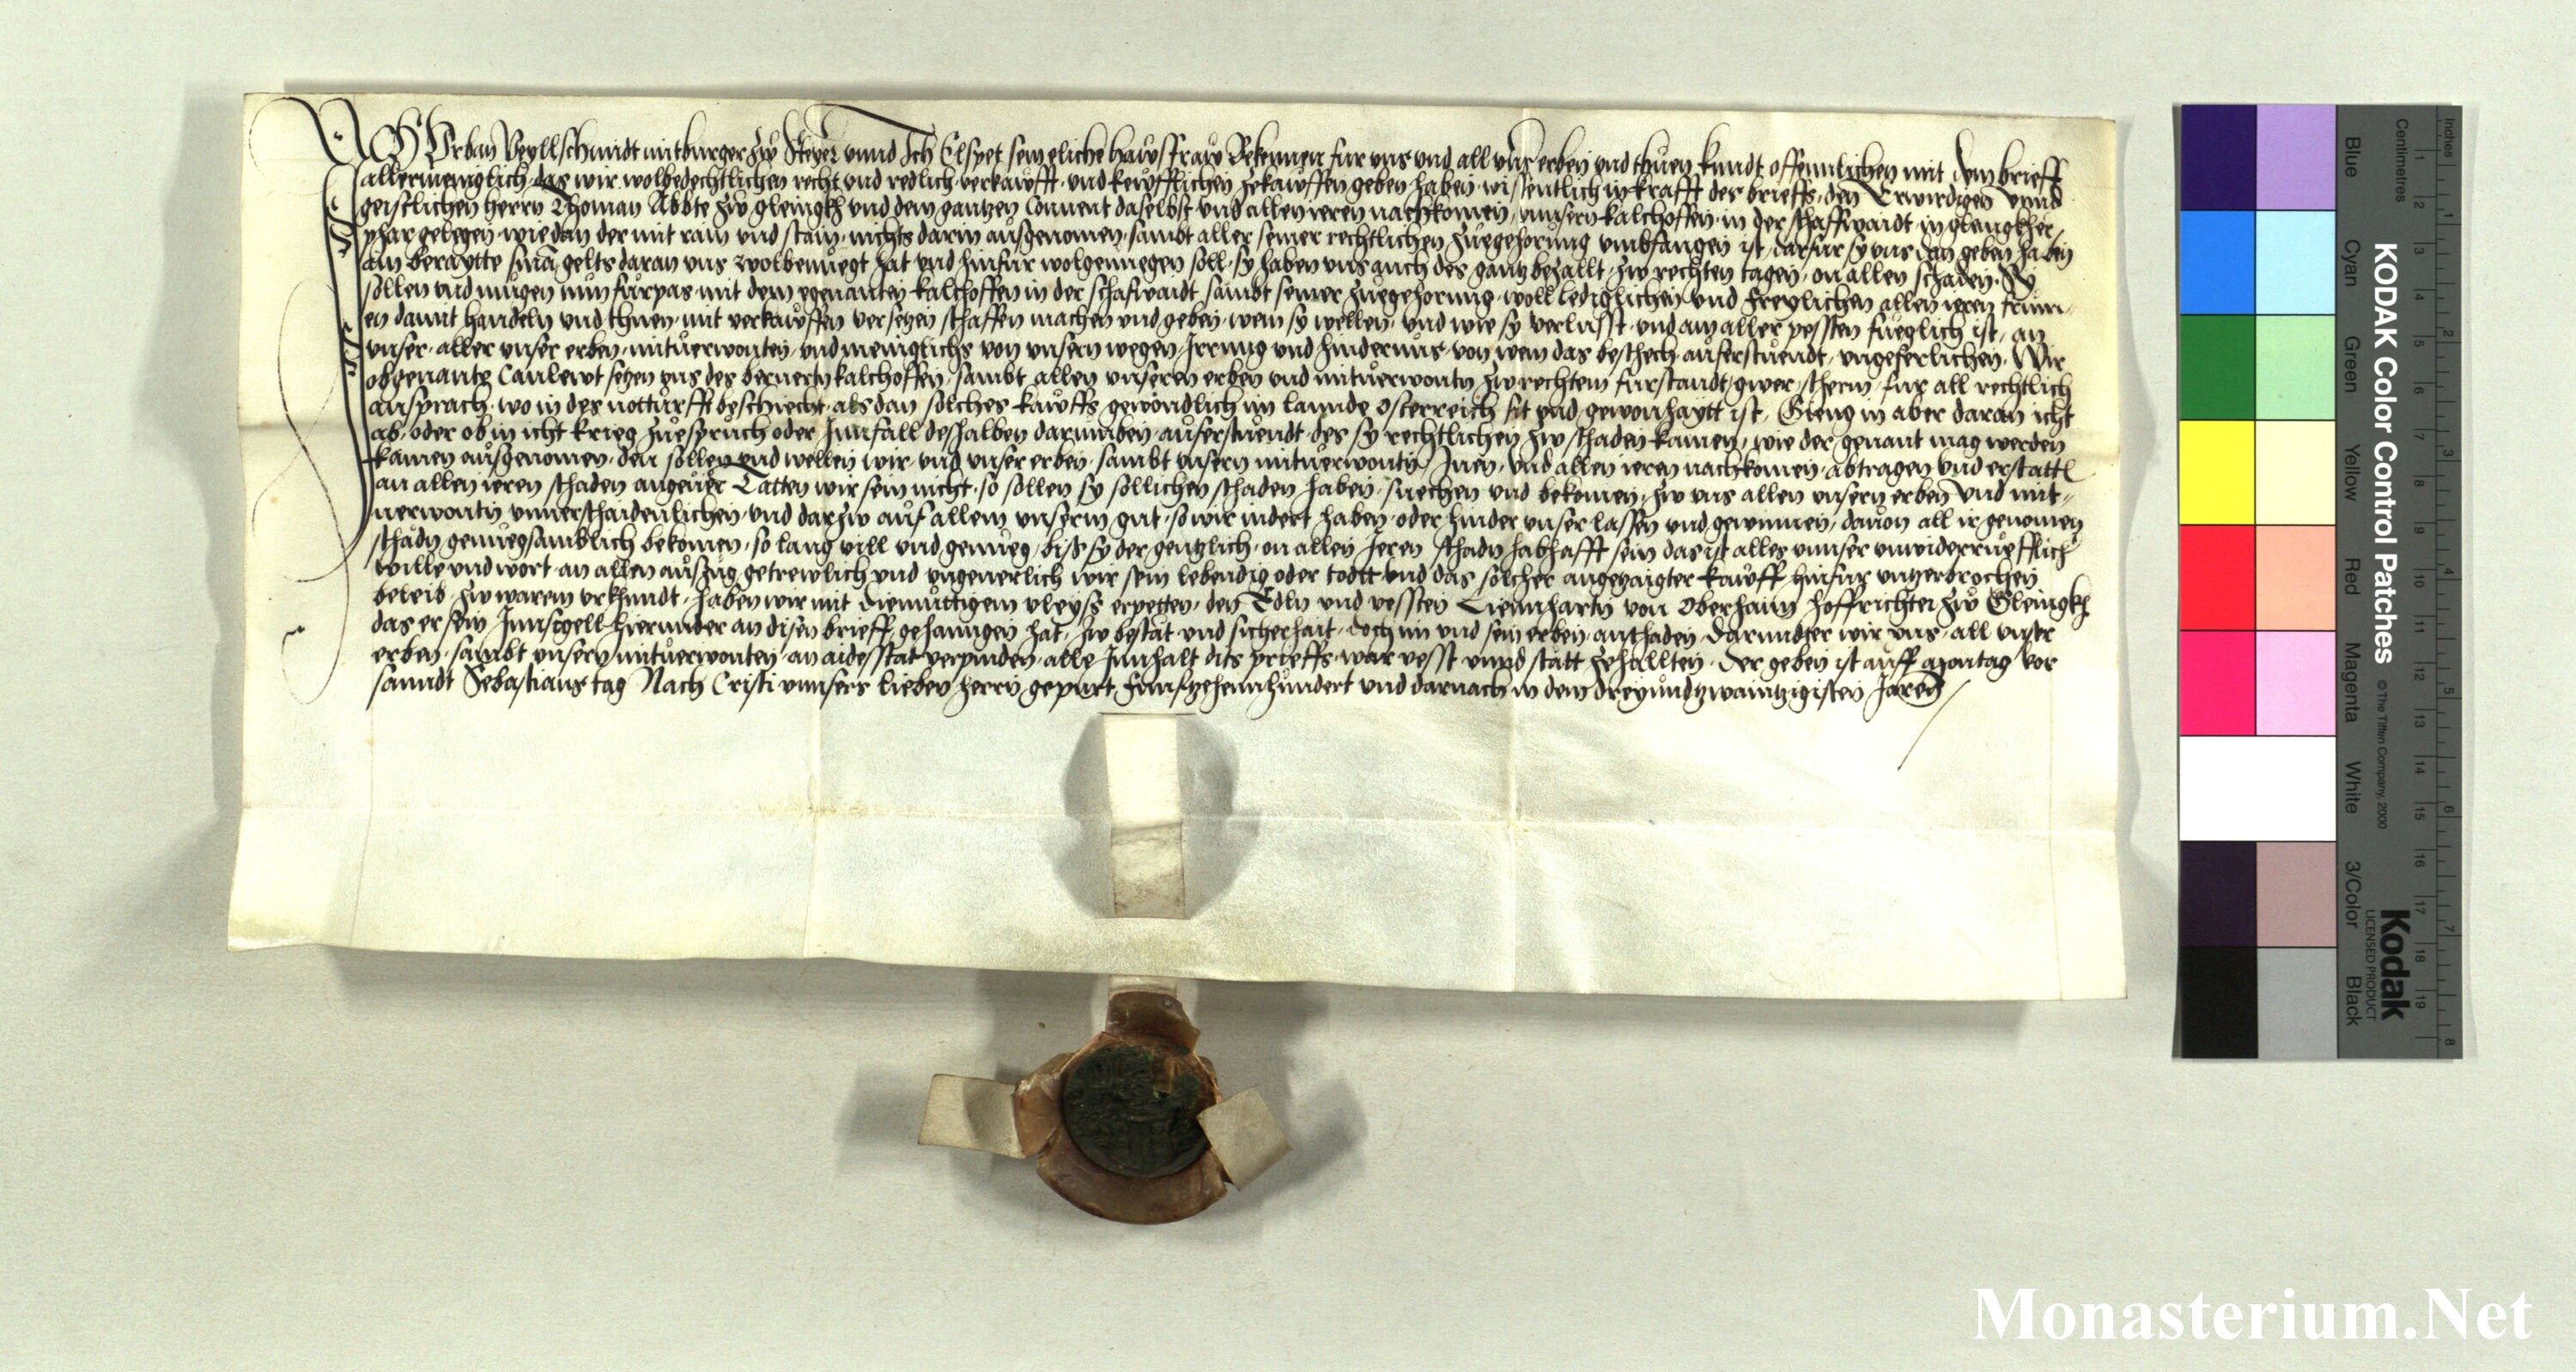 Ich Vrban Veyllschmidt mitburger zw Steyer vnnd Ich Elspet sein eliche hawsfraw Bekennen fur vns vnd all vnser erben vnd thuen kundt offennlichen mit dem brieff
allermeniglich das wir wolbedechtlichen recht vnd redlich verkawfft vnd kewfflichen zekawffen geben haben wissentlich in krafft des brieffs den Erwirdigen vnnd
geistlichen herrn Thoman Abbte zw gleingkh vnd dem gantzen Conuent daselbst vnd allen ieren nachkomen vnnsern kalchoffen in der schaffwaidt in gleingkher
phar gelegen wie dan der mit rain vnd stain nichts darin ausgenomen sambt aller seiner rechtlichen zuegehorung vmbfangen ist darfur sy vns dan geben haben
ain beraytte suma gelts daran vns wolbenuegt hat vnd hinfur wolgenuegen soll sy haben vns auch des gantz bezallt zw rechten tagen on allen schaden Sy
sollen vnd mugen nun furpas mit dem egenanten kalchoffen in der schafwaidt sambt seiner zuegehorung woll lediglichen vnd freylichen allen ieren frum-
en damit handeln vnd thuen mit verkawffen versetzen schaffen machen vnd geben wem sy wellen vnd wie sy verlusst vnd am aller pessten fueglich ist an
vnser aller vnser erben mituerwonten vnd meniglichs von vnsern wegen Irrung vnd hindernus von wem das beschech auferstuendt vngeferlichen Wir
obgenante Conlewt setzen vns des beruertn kalchoffen sambt allen vnseren erben vnd mituerwontn zw rechtem furstandt gwer scherm fur all rechtlich
ansprach wo in des notturfft beschiecht als dan solches kawffs gewondlich im lannde Osterreich sit vnd gewonhaytt ist Gieng in aber daran icht
ab oder ob in icht krieg zuespruch oder Innfall deshalben darinnben auferstuendt des sy rechtlichen zw schaden kamen wie der genant mag werden
kainen ausgenomen den sollen vnd wellen wir vnd vnser erben sambt vnsern mituerwontn Inen vnd allen ieren nachkomen abtragen vnd erstattn
an allen ieren schaden angeuer Tatten wir sein nicht so sollen sy sollichen schaden haben suechen vnd bekomen zw vns allen vnsern erben vnd mit-
uerwontn vnuerschaidenlichen vnd darzw auf allem vnserm gut so wir indert haben oder hinder vnser lassen vnd gewinnen dauon all ir genomen
schadn genuegsamblich bekomen so lang vill vnd genueg biss sy der gentzlich on allen Ieren schadn habhafft sein das ist alles vnnser vnwiderruefflich
wille vnd wort an allen auszug getrewlich vnd vngeuerlich wir sein lebendig oder todtt vnd das solcher angezaigter kawff hinfur vntzerbrochen
beleib zw warem vrkhundt haben wir mit diemuttigem vleyss erpetten den Edln vnd vessten Liennhartn von Oberhaim hoffrichter zw Gleingkh
das er sein Innsigell hierunder an disen brieff gehanngen hat zw bestat vnd sicherhait doch im vnd sein erben anschaden Darunder wir vns all vnser
erben sambt vnsern mituerwonten an aidesstat verpinden alle Innhalt dits prieffs war vesst vnnd statt zehallten Der geben ist auff Montag vor
sanndt Sebastians tag Nach Cristi vnnsers lieben herrn gepurt Funfftzehennhundert vnd darnach in dem dreyundtzwaintzigisten Jaren
KODAK Color Control Patches
© The Tiffen Company, 2000
Kodak
LICENSED PRODUCT
Blue Cyan Green Yellow Red Magenta White 3/Color Black
Inches
Centimetres
1 2 3 4 5 6 7 8 9 10 11 12 13 14 15 16 17 18 19
1 2 3 4 5 6 7 8
Monasterium.Net